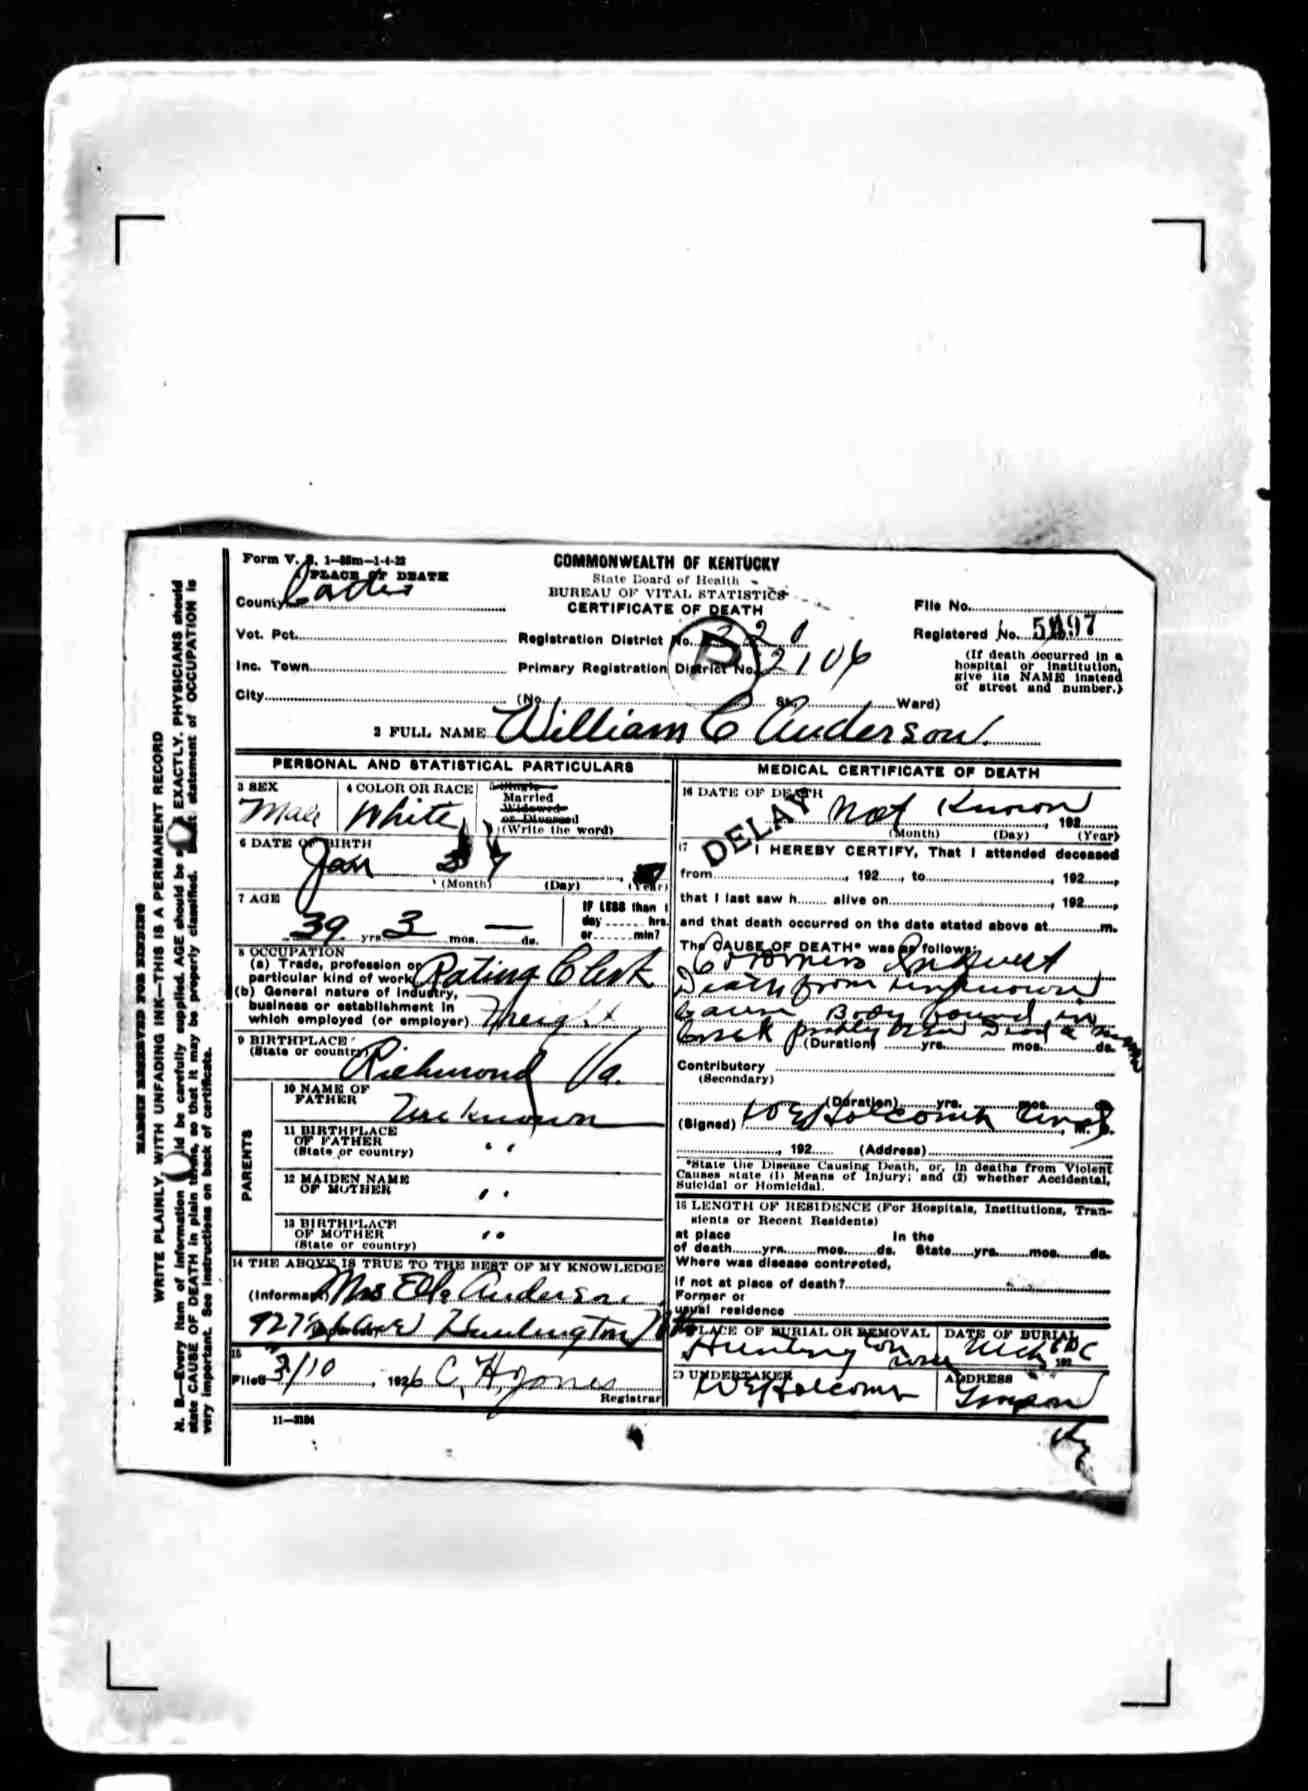 Form V. S. 1—55m—1-4-22
COMMONWEALTH OF KENTUCKY
1 PLACE OF DEATH
State Board of Health
BUREAU OF VITAL STATISTICS
CERTIFICATE OF DEATH
County Carter
File No.
Vot. Pct.
Registration District No. 220
Registered No. 5197
Inc. Town
Primary Registration District No. 2106
(If death occurred in a hospital or institution, give its NAME instead of street and number.)
City
(No. St. Ward)
2 FULL NAME William C Anderson.
PERSONAL AND STATISTICAL PARTICULARS
3 SEX
Male
4 COLOR OR RACE
White
5 Single
Married
Widowed
or Divorced
(Write the word)
6 DATE OF BIRTH
Jan
(Month) (Day) (Year)
7 AGE
39 yrs. 3 mos. — ds.
IF LESS than 1
day hrs.
or min?
8 OCCUPATION
(a) Trade, profession or
particular kind of work Rating Clerk
(b) General nature of industry,
business or establishment in
which employed (or employer) Freight
9 BIRTHPLACE
(State or country)
Richmond Va.
PARENTS
10 NAME OF
FATHER
Unknown
11 BIRTHPLACE
OF FATHER
(State or country)
" "
12 MAIDEN NAME
OF MOTHER
" "
13 BIRTHPLACE
OF MOTHER
(State or country)
" "
14 THE ABOVE IS TRUE TO THE BEST OF MY KNOWLEDGE
(Informant) Mrs Anderson
Huntington
15
Filed 3/10, 1926 C. H. Jones
Registrar
11—3184
MEDICAL CERTIFICATE OF DEATH
16 DATE OF DEATH
DELAY
Not Known, 192
(Month) (Day) (Year)
17 I HEREBY CERTIFY, That I attended deceased
from, 192, to, 192,
that I last saw h alive on, 192,
and that death occurred on the date stated above at m.
The CAUSE OF DEATH* was as follows:
Coroners Inquest
Death from unknown
Cause Body found in
Creek
(Duration) yrs. mos. ds.
Contributory
(Secondary)
(Duration) yrs. mos. ds.
(Signed) W E Holcomb, M. D.
, 192 (Address)
*State the Disease Causing Death, or, in deaths from Violent
Causes state (1) Means of Injury; and (2) whether Accidental,
Suicidal or Homicidal.
18 LENGTH OF RESIDENCE (For Hospitals, Institutions, Tran-
sients or Recent Residents)
at place In the
of death yrs. mos. ds. State yrs. mos. ds.
Where was disease contracted,
if not at place of death?
Former or
usual residence
19 PLACE OF BURIAL OR REMOVAL
Huntington
DATE OF BURIAL
192
20 UNDERTAKER
W E Holcomb
ADDRESS
Grayson
Ky
MARGIN RESERVED FOR BINDING
WRITE PLAINLY, WITH UNFADING INK—THIS IS A PERMANENT RECORD
N. B.—Every item of information should be carefully supplied. AGE should be stated EXACTLY. PHYSICIANS should
state CAUSE OF DEATH in plain terms, so that it may be properly classified. Exact statement of OCCUPATION is
very important. See instructions on back of certificate.